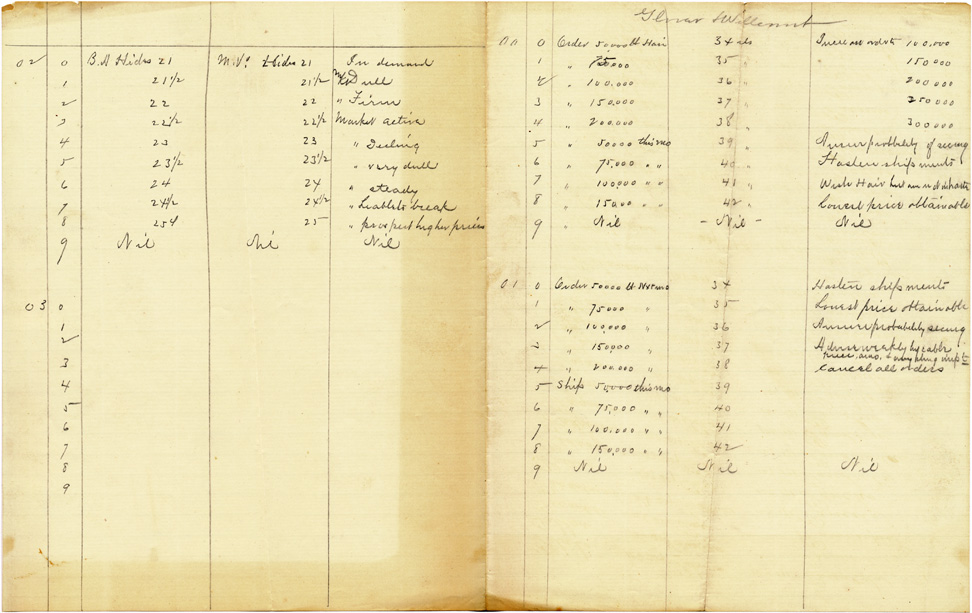 02 0 B.A Hides 21 M.V. Hides 21 In demand
1 21 1/2 21 1/2 Mkt Dull
2 22 22 " Firm
3 22 1/2 22 1/2 Market active
4 23 23 "
5 23 1/2 23 1/2 " very dull
6 24 24 " steady
7 24 1/2 24 1/2 " Liable to break
8 25 25 " prospect higher prices
9 Nil Nil Nil
03 0
1
2
3
4
5
6
7
8
9
00 0 Order 50,000 lb Hair 34 cts Increase order to 100,000
1 " 75,000 35 " 150000
2 " 100,000 36 " 200000
3 " 150,000 37 " 250000
4 " 200,000 38 " 300000
5 " 50000 this mo 39 " Answer probability of securing
6 " 75,000 " " 40 " Hasten shipments
7 " 100,000 " " 41 " Wish Hair but
8 " 150,00 " " 42 " Lowest price obtainable
9 " Nil - Nil - Nil
01 0 Order 50000 lb 34 Hasten shipments
1 " 75000 " 35 Lowest price obtainable
2 " 100,000 " 36 Answer probability securing
3 " 150,000 " 37 Advise weekly by cable
price,
4 " 200,000 " 38 Cancel all orders
5 Ship 50,000 this mo 39
6 " 75,000 " " 40
7 " 100,000 " " 41
8 " 150,000 " " 42
9 Nil Nil Nil